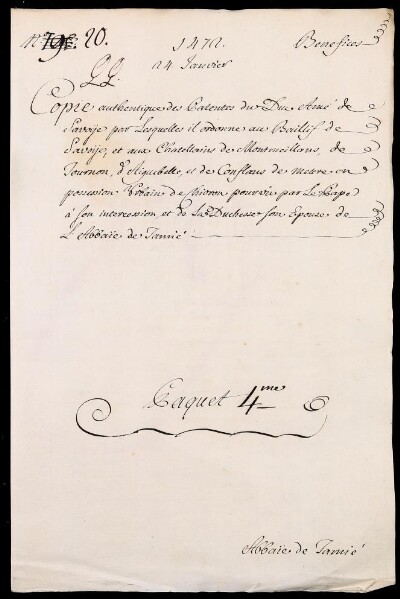 N.º 20. 1472. Benefices
24 Janvier
LL.
Copie authentique des Patentes du Duc Amé de
Savoye par Lesquelles il ordonne au Bailif de
Savoye, et aux Chatellains de Montmeillans, de
Tournon, d'Aiguebelle, et de Conflans de mettre en
possession Urbain de pourvû par Le Pape
à son intercession, et de La Duchesse son Epouse de
L'Abbaïe de Tamié
Paquet 4.me
Abbaïe de Tamié